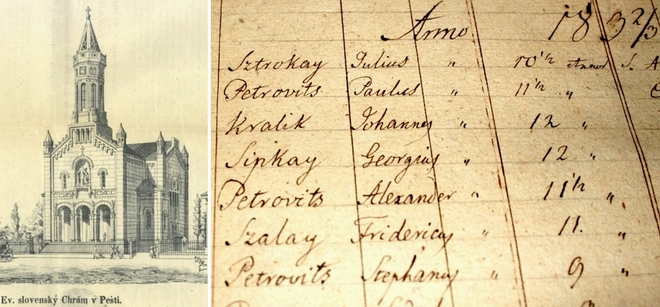 Ev. slovenský Chrám v Pešti.
Anno 183 2/3
Sztrokay Julius " 10 1/2 Annor
Petrovits Paulus " 11 1/2 "
Kralik Johannes " 12 "
Sipkay Georgius " 12 "
Petrovits Alexander " 11 1/2 "
Szalay Fridericus " 11. "
Petrovits Stephanus " 9 "